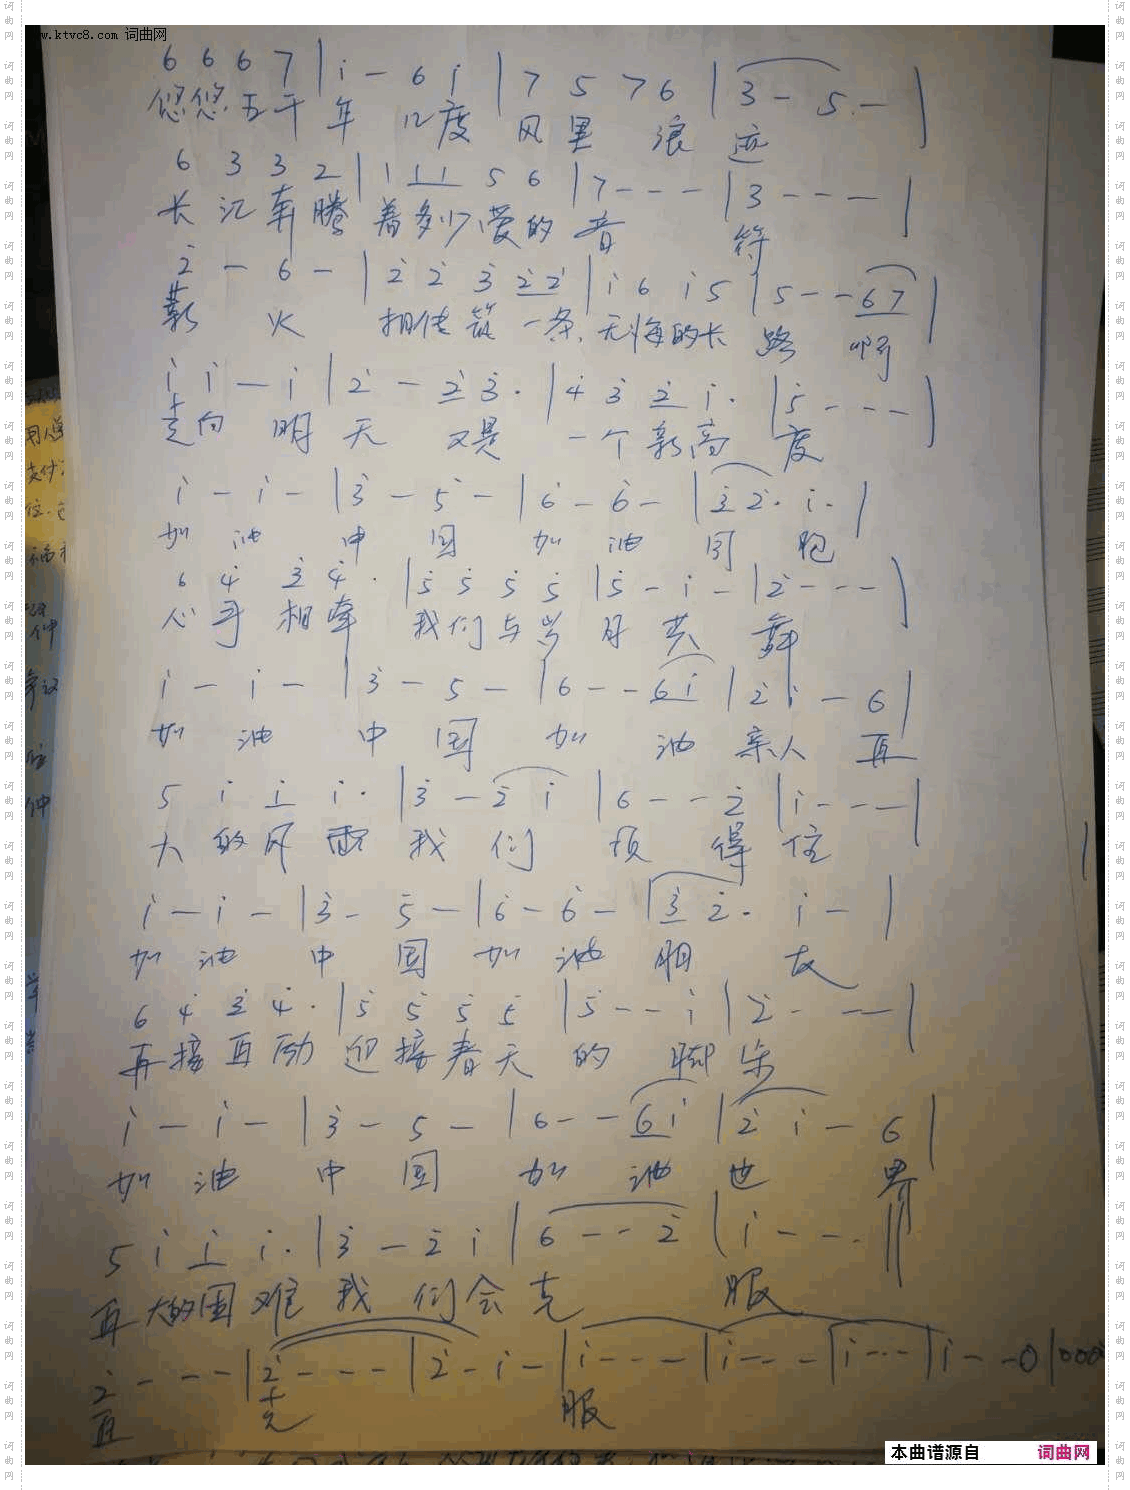 www.ktvc8.com 词曲网
6 6 6 7 | i - 6 i | 7 5 7 6 | 3 - 5 - |
悠悠五千 年 几度 风里 浪迹
6 3 3 2 | 1 1 1 5 6 | 7 - - - | 3 - - - |
长江奔腾 着多少爱的音 符
2 - 6 - | 2 2 3 2 2 | i 6 i 5 | 5 - - 6 7 |
薪 火 相传筑一条 无悔的长 路 啊
i i - i | 2 - 2 3 · | 4 3 2 i · | 5 - - - |
走向 明 天 又是 一个新高 度
i - i - | 3 - 5 - | 6 - 6 - | 3 2 · i - |
加 油 中 国 加 油 同 胞
6 4 3 4 · | 5 5 5 5 | 5 - i - | 2 - - - |
心手相牵 我们与岁 月 共 舞
i - i - | 3 - 5 - | 6 - - 6 i | 2 i - 6 |
加 油 中 国 加 油 亲人 再
5 i i i · | 3 - 2 i | 6 - - 2 | i - - - |
大的风雨 我 们 顶 得 住
i - i - | 3 - 5 - | 6 - 6 - | 3 2 · i - |
加 油 中 国 加 油 朋 友
6 4 3 4 · | 5 5 5 5 | 5 - - i | 2 - - - |
再接再励 迎接春天 的 脚步
i - i - | 3 - 5 - | 6 - - 6 i | 2 i - 6 |
加 油 中 国 加 油 世 界
5 i i i · | 3 - 2 i | 6 - - 2 | i - - - ||
再大的困难 我 们会克 服
2 - - - | 2 - - - | 2 - i - | i - - - | i - - - | i - - - | i - - 0 | 000
克 服
本曲谱源自 词曲网